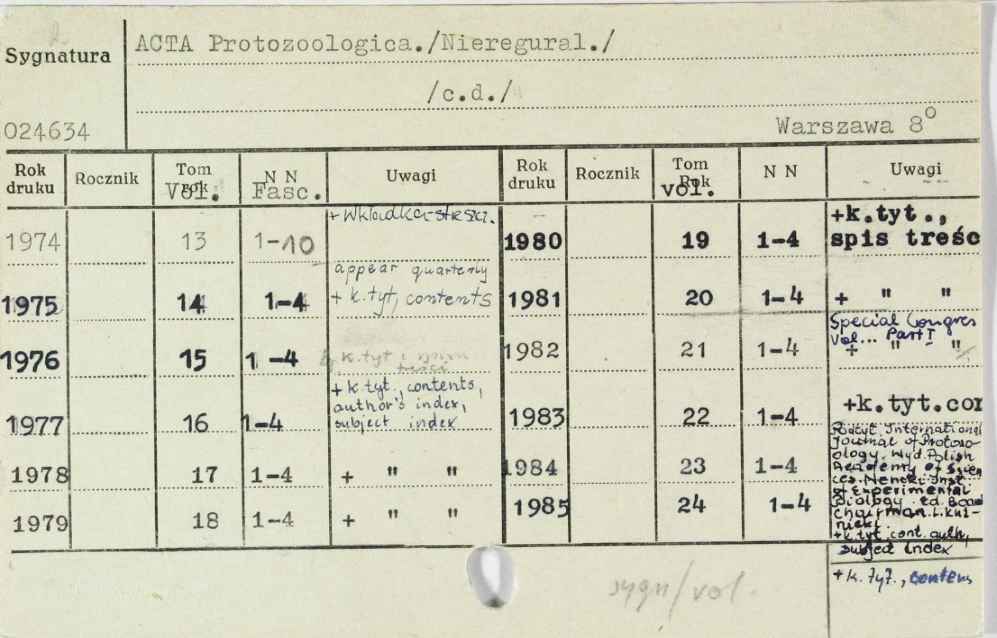 Sygnatura
ACTA Protozoologica./Nieregural./
/c.d./
024634
Warszawa 8°
Rok druku Rocznik Tom Rok Vol. N N Fasc. Uwagi Rok druku Rocznik Tom Rok vol. N N Uwagi
1974 13 1-10 + wkładka-streszcz.
appear quarterly
1975 14 1-4 + k.tyt, contents
1976 15 1-4 k.tyt i spisu treści
1977 16 1-4 + k tyt., contents,
author's index,
subject index
1978 17 1-4 + " "
1979 18 1-4 + " "
1980 19 1-4 +k.tyt.,
spis treśc
1981 20 1-4 + " "
Special Congres
Vol... Part I
1982 21 1-4 + " "
1983 22 1-4 +k.tyt.con
Podtyt. International
Journal of Protozo-
ology. Wyd. Polish
Academy of Scien
ces. Nencki Inst.
of Experimental
Biology. Ed. Board
chairman L. Kuź-
nicki.
1984 23 1-4
1985 24 1-4
+k.tyt. cont. auth,
subject index
+ k. tyt., contens
sygn/vol.